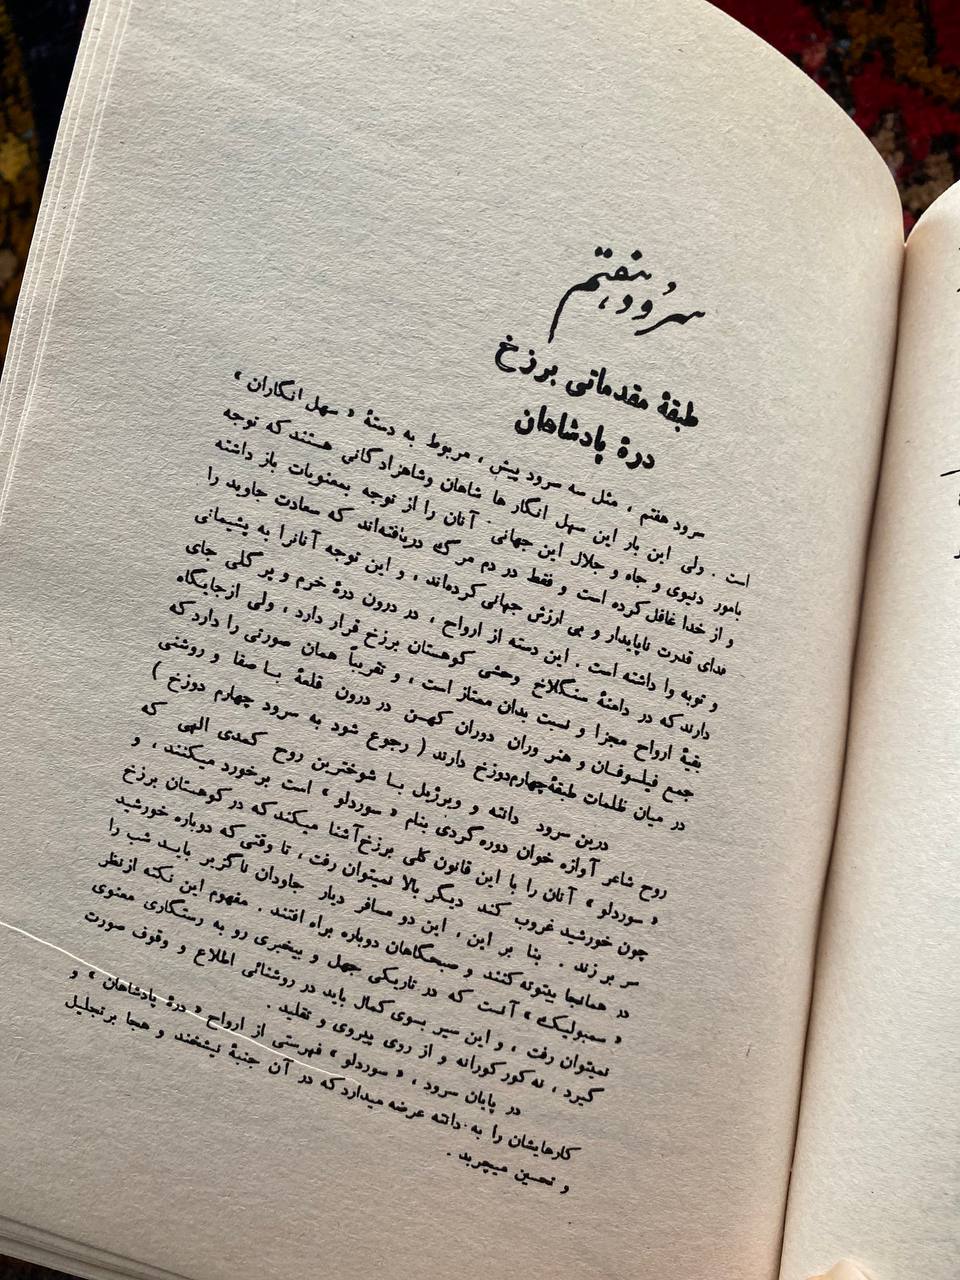 سرود هفتم
طبقهٔ مقدماتی برزخ
درهٔ پادشاهان
سرود هفتم ، مثل سه سرود پیش ، مربوط به دستهٔ « سهل انگاران »
است . ولی این بار این سهل انگار ها شاهان وشاهزاد گانی هستند که توجه
بامور دنیوی و جاه و جلال این جهانی . آنان را از توجه بمعنویات باز داشته
و از خدا غافل کرده است و فقط در دم مرگ دریافته‌اند که سعادت جاوید را
فدای قدرت ناپایدار و بی ارزش جهانی کرده‌اند ، و این توجه آنانرا به پشیمانی
و توبه وا داشته است . این دسته از ارواح ، در درون درهٔ خرم و پر گلی جای
دارند که در دامنهٔ سنگلاخ وحشی کوهستان برزخ قرار دارد ، ولی ازجایگاه
بقیهٔ ارواح مجزا و نسبت بدان ممتاز است ، و تقریباً همان صورتی را دارد که
جمع فیلسوفان و هنر وران دوران کهن در درون قلعهٔ با صفا و روشنی
در میان ظلمات طبقهٔ چهارم‌دوزخ دارند ( رجوع شود به سرود چهارم دوزخ )
درین سرود دانته و ویرژیل با شوخترین روح کمدی الهی که
روح شاعر آوازه خوان دوره گردی بنام « سوردلو » است برخورد میکنند ، و
« سوردلو » آنان را با این قانون کلی برزخ آشنا میکند که در کوهستان برزخ
چون خورشید غروب کند دیگر بالا نمیتوان رفت ، تا وقتی که دوباره خورشید
سر بر زند . بنا بر این ، این دو مسافر دیار جاودان ناگزیر باید شب را
در همانجا بیتوته کنند و صبحگاهان دوباره براه افتند . مفهوم این نکته ازنظر
« سمبولیک » آنست که در تاریکی جهل و بیخبری رو به رستگاری معنوی
نمیتوان رفت ، و این سیر بسوی کمال باید در روشنائی اطلاع و وقوف صورت
گیرد ، نه کور کورانه و از روی پیروی و تقلید .
در پایان سرود ، « سوردلو » فهرستی از ارواح « درهٔ پادشاهان » و
کارهایشان را به دانته عرضه میدارد که در آن جنبهٔ نیشخند و هجا بر تجلیل
و تحسین میچربد .